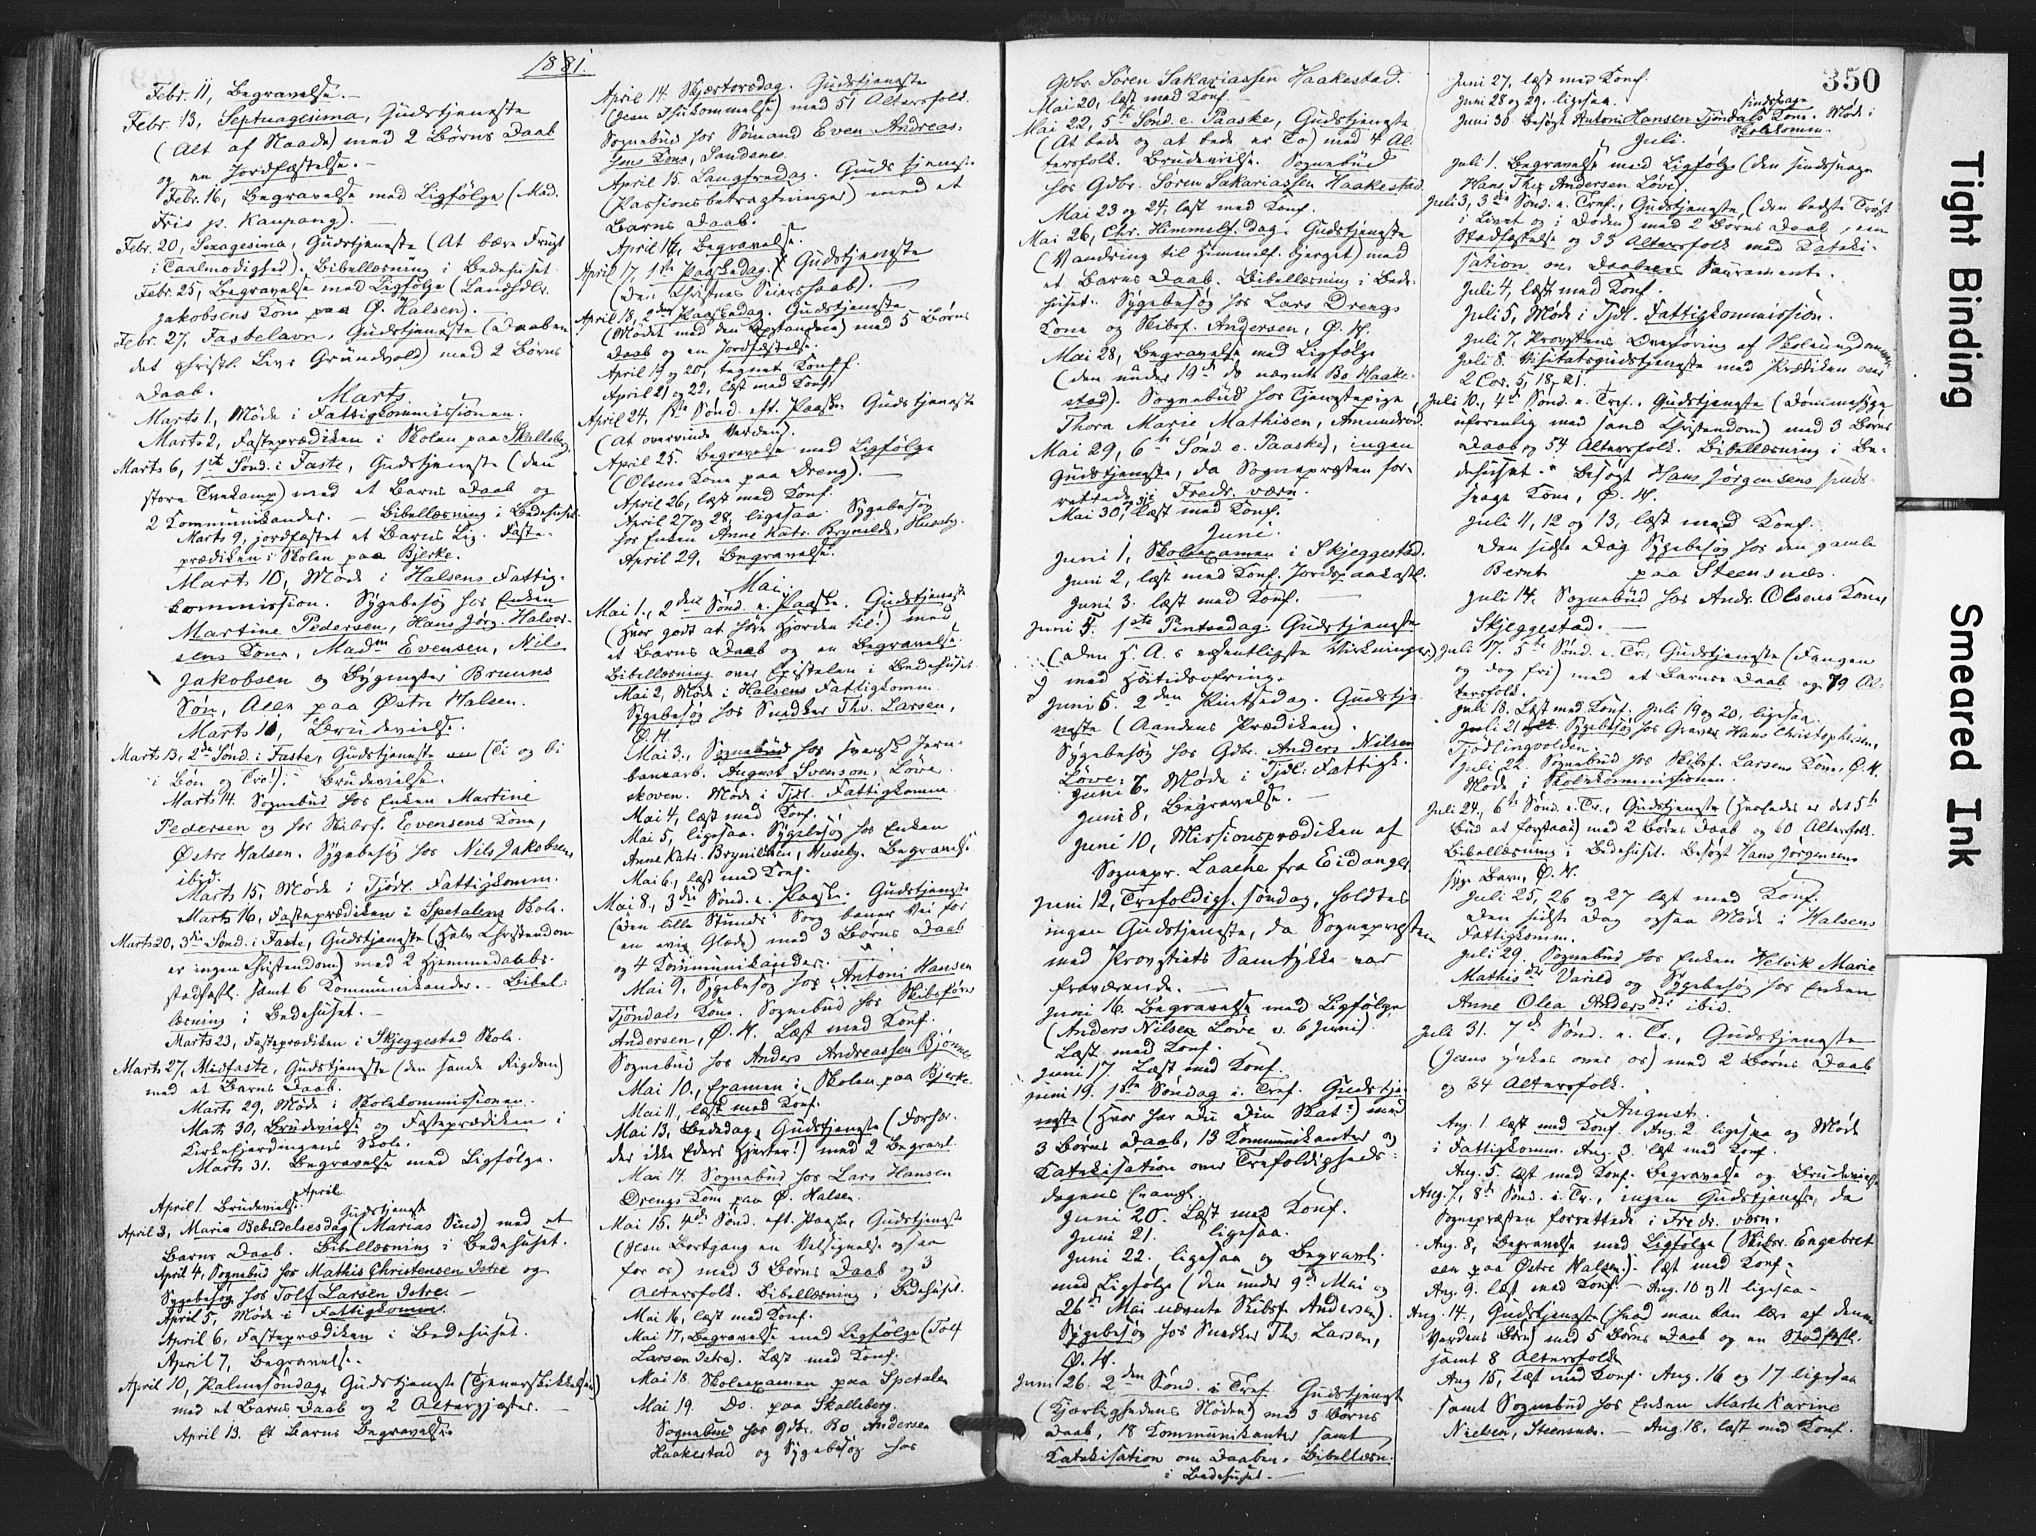 1881.
Febr. 11, Begravelse. —
Febr. 13, Septuagesima, Gudstjeneste
(Alt af Naade) med 2 Børns Daab
og en Jordfæstelse. —
Febr. 16, Begravelse med Ligfølge (Mad.
Friis p. Kaupang). —
Febr. 20, Sexagesima, Gudstjeneste (At bære Frugt
i Taalmodighed). Bibellæsning i Bedehuset.
Febr. 25, Begravelse med Ligfølge (Landhdlr.
Jakobsens Kone paa Ø. Halsen).
Febr. 27, Fastelavn, Gudstjeneste (Daaben
det christl. Livs Grundvold) med 2 Børns
Daab.
Marts.
Marts 1, Møde i Fattigkommissionen.
Marts 2, Fasteprædiken i Skolen paa Skalleberg
Marts 6, 1ste Sønd. i Faste, Gudstjeneste (den
store Tvekamp) med et Barns Daab og
2 Kommunikander. — Bibellæsning i Bedehuset.
Marts 9, jordfæstet et Barns Lig. Faste-
prædiken i Skolen paa Bjerke.
Marts 10, Møde i Halsens Fattig-
kommission. Sygebesøg hos Enken
Martine Pedersen, Hans Jørg. Halvor-
sens Kone, Madm Evensen, Nils
Jakobsen og Bygmester Bruuns
Søn, Alle paa Østre Halsen.
Marts 11, Brudevielse.
Marts 13, 2den Sønd. i Faste, Gudstjeneste (Ti og bi
i Bøn og Tro!). Brudevielse.
Marts 14. Sognebud hos Enken Martine
Pedersen og hos Skibsf. Evensens Kone,
Østre Halsen. Sygebesøg hos Nils Jakobsen,
ibid.
Marts 15, Møde i Tjødl. Fattigkomm.
Marts 16, Fasteprædiken i Spetalens Skole.
Marts 20, 3die Sønd. i Faste, Gudstjeneste (Halv Christendom
er ingen Christendom) med 2 Hjemmedaabs-
stadfæst. samt 6 Kommunikander. — Bibel-
læsning i Bedehuset. —
Marts 23, Fasteprædiken i Skjeggestad Skole.
Marts 27, Midfaste, Gudstjeneste (den sande Rigdom)
med et Barns Daab.
Marts 29, Møde i Skolekommissionen.
Marts 30, Brudevielse og Fasteprædiken i
Kirkefjerdingens Skole.
Marts 31. Begravelse med Ligfølge.
April
April 1. Brudevielse.
April 3, Maria Bebudelsesdag Gudstjeneste (Marias Sind) med et
Barns Daab. Bibellæsning i Bedehuset.
April 4, Sognebud hos Mathis Christensen Istre og
Sygebesøg hos Tolf Larsen Istre. —
April 5, Møde i Fattigkomm.
April 6, Fasteprædiken i Bedehuset.
April 7, Begravelse.
April 10, Palmesøndag, Gudstjeneste (Tjenerskikkelsen)
med et Barns Daab og 2 Altergjæster. —
April 13. Et Barns Begravelse.
April 14. Skjærtorsdag. Gudstjeneste
(Jesu Ihukommelse) med 51 Altersfolk.
Sognebud hos Sømand Even Andreas-
sens Kone, Sandenes.
April 15. Langfredag. Gudstjenes-
(Passionsbetragtninger) med et
Barns Daab.
April 16, Begravelse.
April 17, 1ste Paaskedag. Gudstjeneste
(Den Christnes Seierssaab). —
April 18, 2den Paaskedag. Gudstjeneste
(Mødet med den Opstandne) med 5 Børns
Daab og en Jordfæstelse.
April 19 og 20, tegnet Konff.
April 21 og 22, læst med Konf.
April 24, 1ste Sønd. eft. Paaske Gudstjeneste
(At overvinde Verden).
April 25. Begravelse med Ligfølge
(Olsens Kone paa Dreng). —
April 26, læst med Konf.
April 27 og 28, ligesaa. Sygebesøg
hos Enken Anne Katr. Brynilds, Huseby.
April 29, Begravelse.
Mai.
Mai 1., 2den Sønd. e. Paaske. Gudstjeneste
(Hvor godt at høre Hjorden til!) med
et Barns Daab og en Begravelse.
Bibellæsning over Epistelen i Bedehuset.
Mai 2, Møde i Halsens Fattigkomm.
Sygebesøg hos Snedker Thv. Larsen,
Ø. H.
Mai 3., Sognebud hos svensk Jern-
banearb. August Svenson, Løve-
skoven. Møde i Tjdl. Fattigkomm.
Mai 4, læst med Konf.
Mai 5, ligesaa. Sygebesøg hos Enken
Anne Katr. Brynildsen, Huseby. Begravelse
Mai 6., læst med Konf.
Mai 8., 3die Sønd. e. Paaske. Gudstjeneste
(Den lille Stunds Sorg baner Vei for
en evig Glæde) med 3 Børns Daab
og 4 Kommunikander. —
Mai 9, Sygebesøg hos Antoni Hansen
Tjøndals Kone. Sognebud hos Skibsfører
Andersen, Ø. H. Læst med Konf.
Sognebud hos Anders Andreassen Bjønnes
Mai 10., Examen i Skolen paa Bjerke
Mai 11, læst med Konf.
Mai 13, Bededag, Gudstjeneste (Forhær-
der ikke Eders Hjerter!) med 2 Begravl.
Mai 14. Sognebud hos Lars Hansen
Drengs Kone paa Ø. Halsen.
Mai 15. 4de Sønd. eft. Paaske, Gudstjeneste
(Jesu Bortgang en Velsignelse ogsaa
for os) med 3 Børns Daab og 3
Altersfolk. Bibellæsning i Bedehuset.
Mai 16, læst med Konf.
Mai 17, Begravelse med Ligfølge (Tolf
Larsen Istre). Læst med Konf.
Mai 18. Skoleexamen paa Spetalen
Mai 19. Do. paa Skalleberg.
Sognebud hos Gdbr. Bo Andersen
Haakestad og Sygebesøg hos
350
Gdbr. Søren Sakariassen Haakestad.
Mai 20, læst med Konf.
Mai 22, 5te Sønd. e. Paaske, Gudstjeneste
(At bede og at bede er To) med 4 Al-
tersfolk. Brudevielse. Sognebud
hos Gdbr. Søren Sakariassen Haakestad.
Mai 23 og 24, læst med Konf.
Mai 26, Chr. Himmelf. dag. Gudstjeneste
(Vandring til Himmelf. bjerget) med
et Barns Daab. Bibellæsning i Bede-
huset. Sygebesøg hos Lars Drengs
Kone og Skibsf. Andersen, Ø. H.
Mai 28, Begravelse med Ligfølge
(den under 19de ds nævnte Bo Haake-
stad). Sognebud hos Tjenestepige
Thora Marie Mathisen, Amundrød
Mai 29, 6te Sønd. e. Paaske), ingen
Gudstjeneste, da Sognepræsten for-
rettede i Fredr. værn.
Mai 30, læst med Konf.
Juni.
Juni 1, Skoleexamen i Skjeggestad.
Juni 2, læst med Konf. Jordspaakastl.
Juni 3. læst med Konf. —
Juni 5. 1ste Pintsedag. Gudstjeneste
(Den H. A.s væsentligste Virkninger)
med Høitidsofring.
Juni 6. 2den Pintsedag. Gudstje-
neste (Aandens Prædiken).
Sygebesøg hos Gdbr. Anders Nilsen
Løve.
Juni 7. Møde i Tjdl. Fattigk.
Juni 8, Begravelse. —
Juni 10, Missionsprædiken af
Sognepr. Laache fra Eidanger.
Juni 12, Trefoldigh. søndag, holdtes
ingen Gudstjeneste, da Sognepræsten
med Provstiets Samtykke var
fraværende. —
Juni 16. Begravelse med Ligfølge
(Anders Nilsen Løve v. 6 Juni).
Læst med Konf.
Juni 17. Læst med Konf.
Juni 19. 1ste Søndag e. Tref. Gudstje-
neste (Hvor har Du Din Skat?) med
3 Børns Daab, 13 Kommunikanter og
Katekisation over Trefoldigheds-
dagens Evangl.
Juni 20. Læst med Konf.
Juni 21. ligesaa.
Juni 22. ligesaa og Begravl.
med Ligfølge (den under 9de Mai og
26de Mai nævnte Skibsf. Andersen).
Sygebesøg hos Snedker Thv. Larsen,
Ø. H.
Juni 26. 2den Sønd. e. Tref. Gudstjeneste
(Kjærlighedens Nøden) med 3 Børns
Daab, 18 Kommunikanter samt
Katekisation om Daaben. Bibellæsn.
i Bedehuset. —
Juni 27, læst med Konf.
Juni 28 og 29, ligesaa.
Juni 30 besøgt Antoni Hansen Tjøndals sindssvage Kone. Møde i
Skolekomm.
Juli.
Juli 1. Begravelse med Ligfølge (den sindssvage
Hans Andersen Løve).
Juli 3, 3die Sønd. e. Tref., Gudstjeneste (den bedste Trøst
i Livet og i Døden) med 2 Børns Daab, en
Stadfæstelse og 33 Altersfolk med Kateki-
sation om Daabens Sacramente.
Juli 4, læst med Konf.
Juli 5, Møde i Tjdl. Fattigkommission.
Juli 7, Provstens Overhøring af Skoleungdommen
Juli 8. Visitatsgudstjeneste med Prædiken over
2 Cor. 5, 18-21.
Juli 10., 4de Sønd. e. Tref. Gudstjeneste (Dømmesyge
uforenlig med sand Christendom) med 3 Børns
Daab og 54 Altersfolk. Bibellæsning i Be-
dehuset. Besøgt Hans Jørgensens sinds-
svage Kone, Ø. H.
Juli 11, 12 og 13, læst med Konf.
Den sidste Dag Sygebesøg hos den gamle
Bernt paa Steensnæs.
Juli 14. Sognebud hos Andr. Olsens Kone,
Skjeggestad. —
Juli 17. 5te Sønd. e. Tr., Gudstjeneste (Fangen
og dog fri) med et Barns Daab og 79 Al-
tersfolk.
Juli 18. Læst med Konf. Juli 19 og 20, ligesaa.
Juli 21 Sygebesøg hos Graver Hans Christophersen,
Tjødlingvolden.
Juli 22. Sognebud hos Skibsf. Larsens Kone, Ø. H.
Møde i Skolekommissionen.
Juli 24., 6te Sønd. e. Tr., Gudstjeneste (Hvorledes er det 5te
Bud at forstaa?) med 2 Børns Daab og 60 Altersfolk.
Bibellæsning i Bedehuset. Besøgt Hans Jørgensens
syge Barn, Ø. H.
Juli 25, 26 og 27 læst med Konf.
Den sidste Dag ogsaa Møde i Halsens
Fattigkomm.
Juli 29. Sognebud hos Enken Helvik Marie
Mathisdtr Varild og Sygebesøg hos Enken
Anne Olea Andersdtr ibid.
Juli 31. 7de Sønd. e. Tr., Gudstjeneste
(Jesus ynkes over os) med 2 Børns Daab
og 34 Altersfolk.
August.
Aug. 1 læst med Konf. Aug. 2 ligesaa og Møde
i Fattigkomm. Aug. 3. læst med Konf.
Aug. 5. læst med Konf. Begravelse og Brudevielse
Aug. 7, 8de Sønd. e. Tr., ingen Gudstjeneste, da
Sognepræsten forrettede i Fredr. værn.
Aug. 8, Begravelse med Ligfølge (Skibsr. Engebret
sen paa Østre Halsen). læst med Konf.
Aug. 9. læst med Konf. — Aug. 10 og 11 ligesaa. —
Aug. 14., Gudstjeneste (hvad man kan lære af denne
Verdens Børn) med 5 Børns Daab og en Stadfæstl.
samt 8 Altersfolk
Aug 15, læst med Konf. Aug. 16 og 17 ligesaa
samt Sognebud hos Enken Marte Karine
Nielsen, Steensnæs. — Aug. 18, læst med Konf.
Tight Binding
Smeared Ink